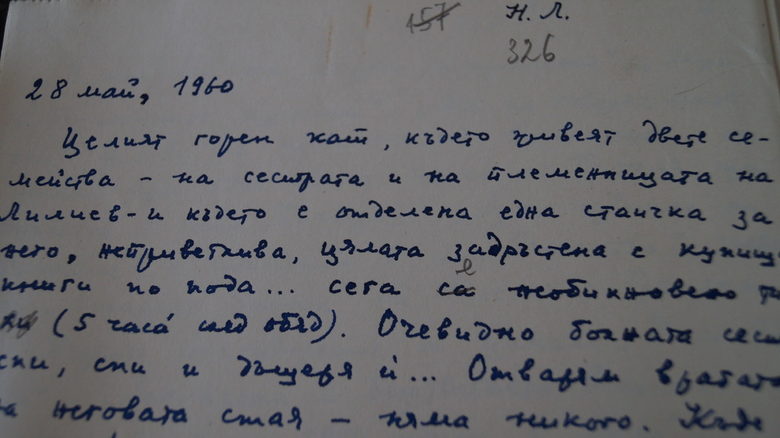 157 Н. Л.
326
28 май, 1960
Целият горен кат, където живеят двете се-
мейства - на сестрата и на племенницата на
Лилиев - и където е отделена една стаичка за
него, неприветлива, цялата задръстена с купищ
книги по пода... сега е необикновено ти
(5 часá след обяд). Очевидно болната сест
спи, спи и дъщеря ѝ... Отварям вратата
на неговата стая - няма никого. Къде